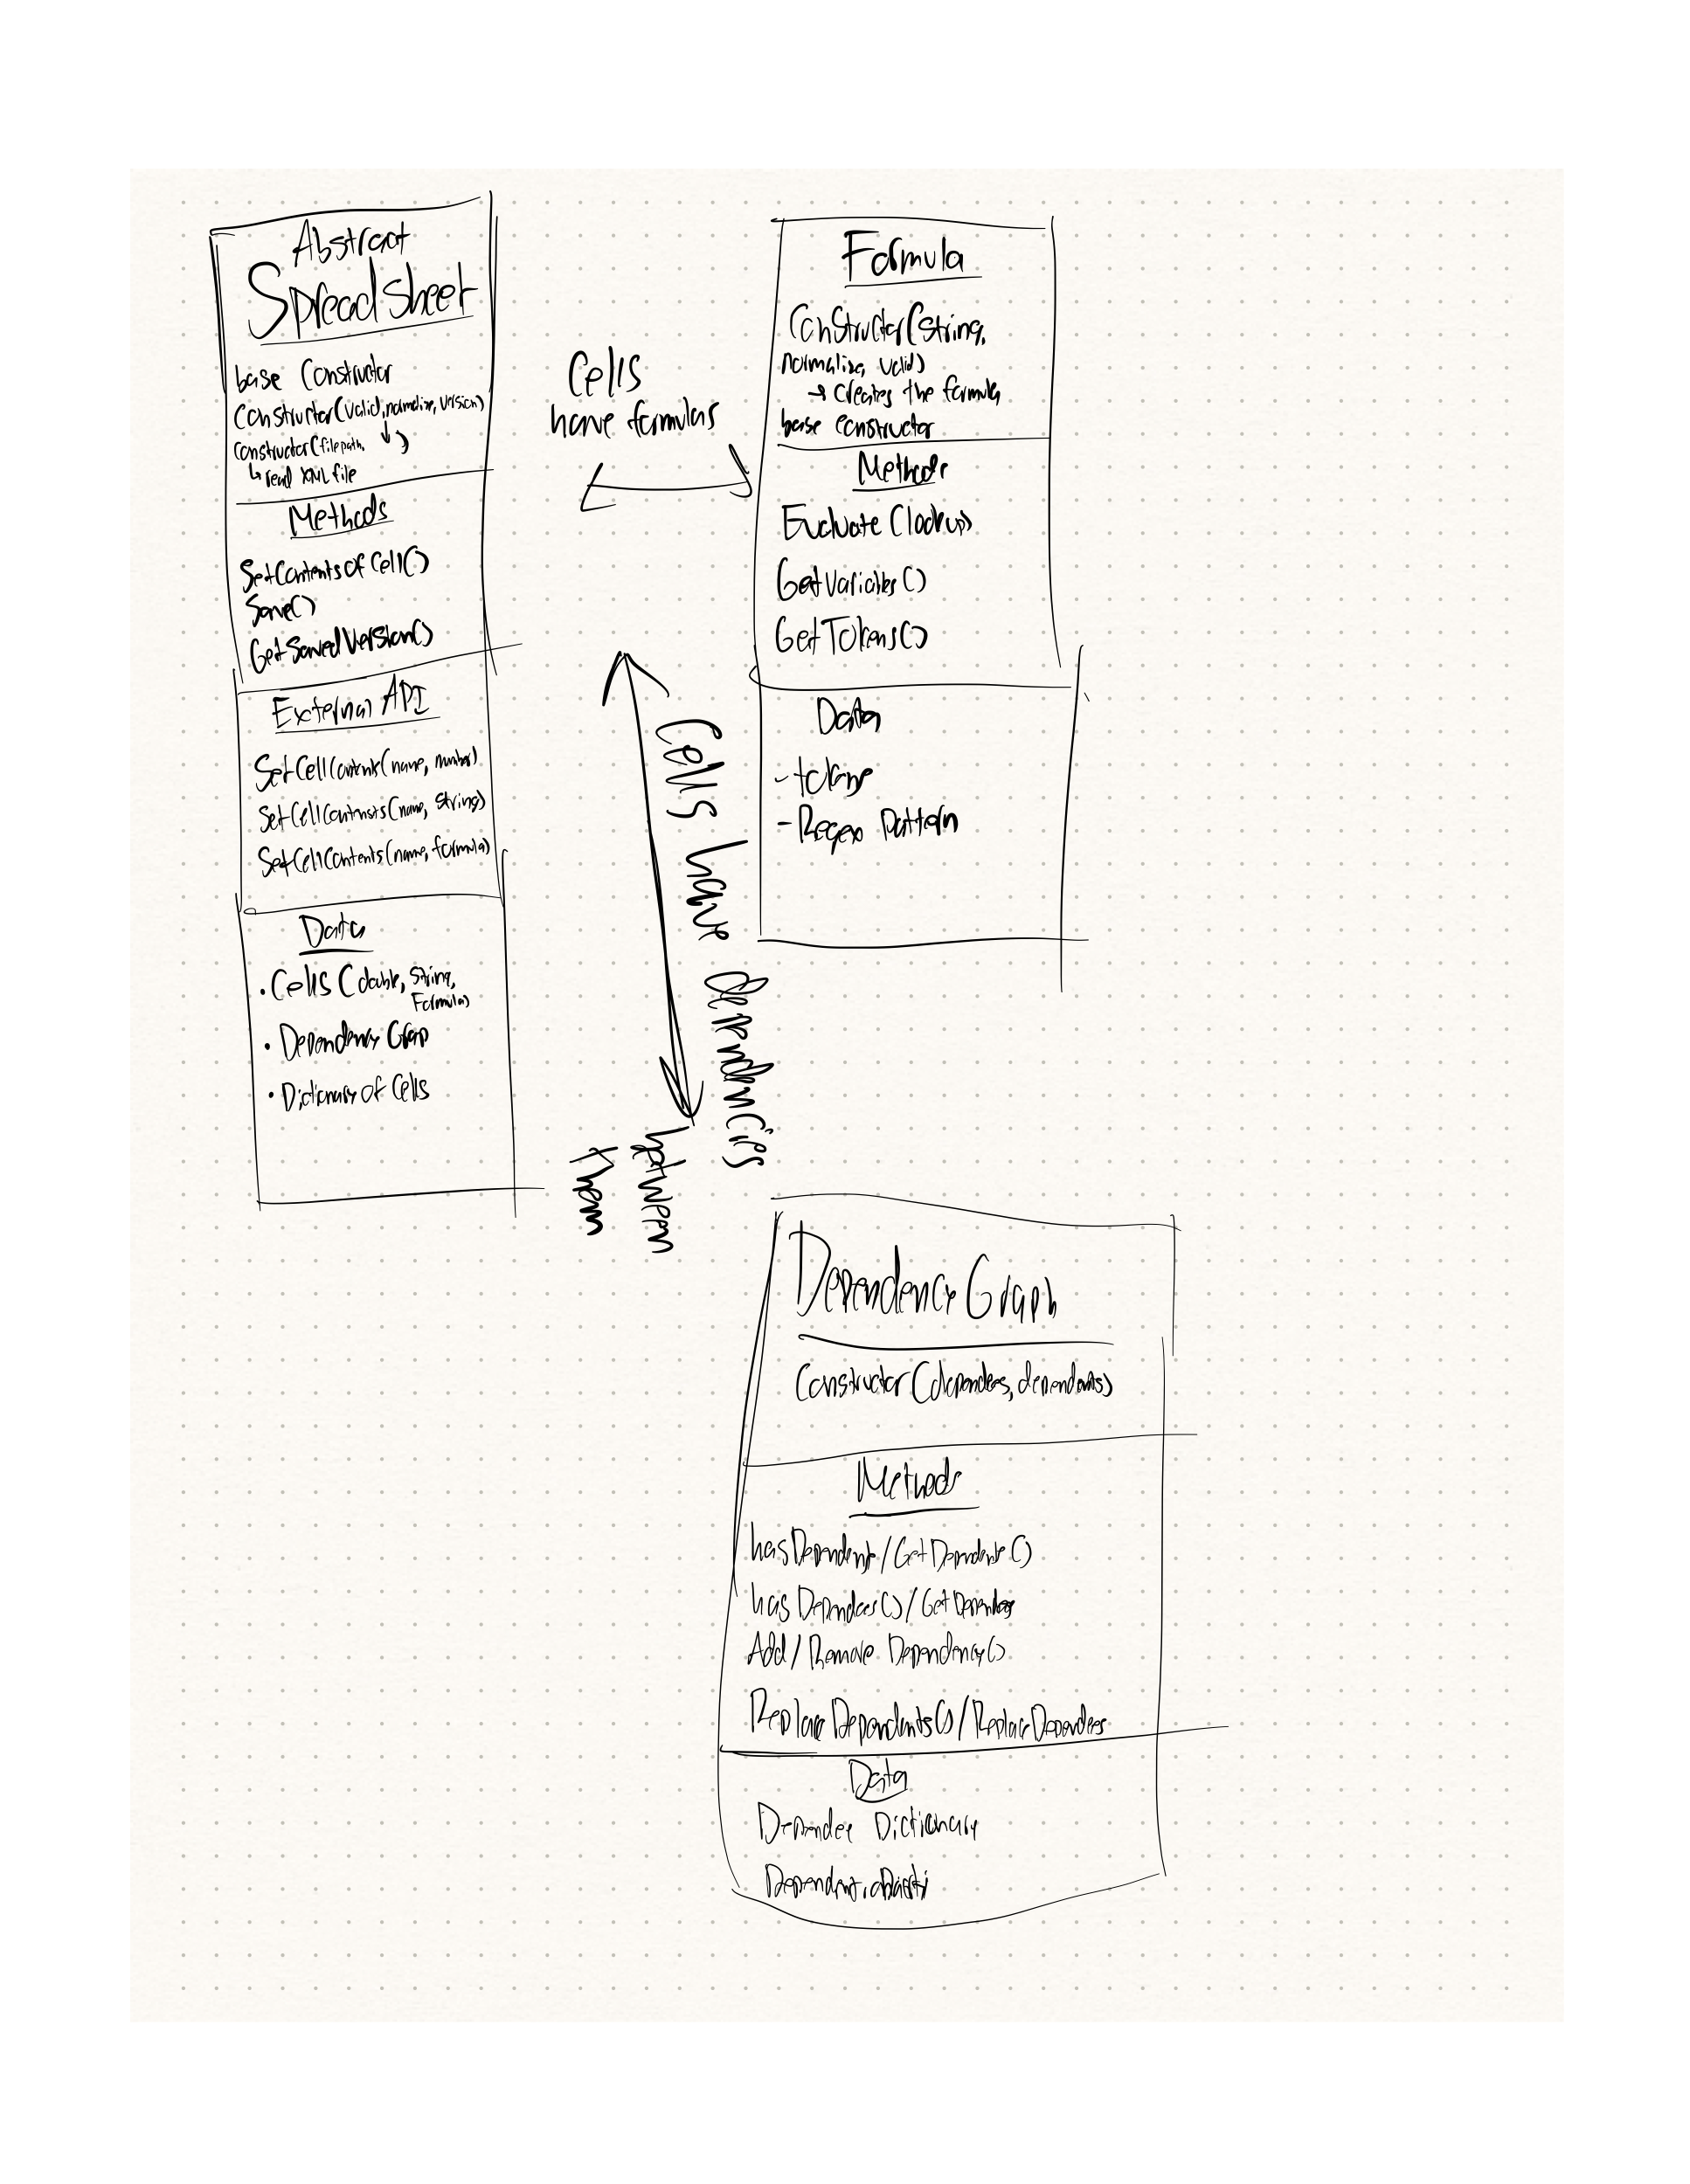 Abstract
Spreadsheet
base Constructor
Constructor(valid, normalize, version)
Constructor(filepath, ↓ )
↳ read XML file
Methods
SetContentsOfCell()
Save()
GetSavedVersion()
External API
SetCellContents(name, number)
SetCellContents(name, string)
SetCellContents(name, formula)
Data
• Cells (double, string,
Formula)
• Dependency Grap
• Dictionary of Cells
Cells
have formulas
Cells have dependencies
between
them
Formula
Constructor(string,
normalize, valid)
→ Creates the formula
base constructor
Methods
Evaluate(lookup)
GetVariables()
GetTokens()
Data
- tokens
- Regex Pattern
Dependency Graph
Constructor(dependees, dependents)
Methods
hasDependents/GetDependents()
hasDependees()/GetDependees
Add/Remove Dependency()
ReplaceDependents()/ReplaceDependees
Data
Dependee Dictionary
Dependent